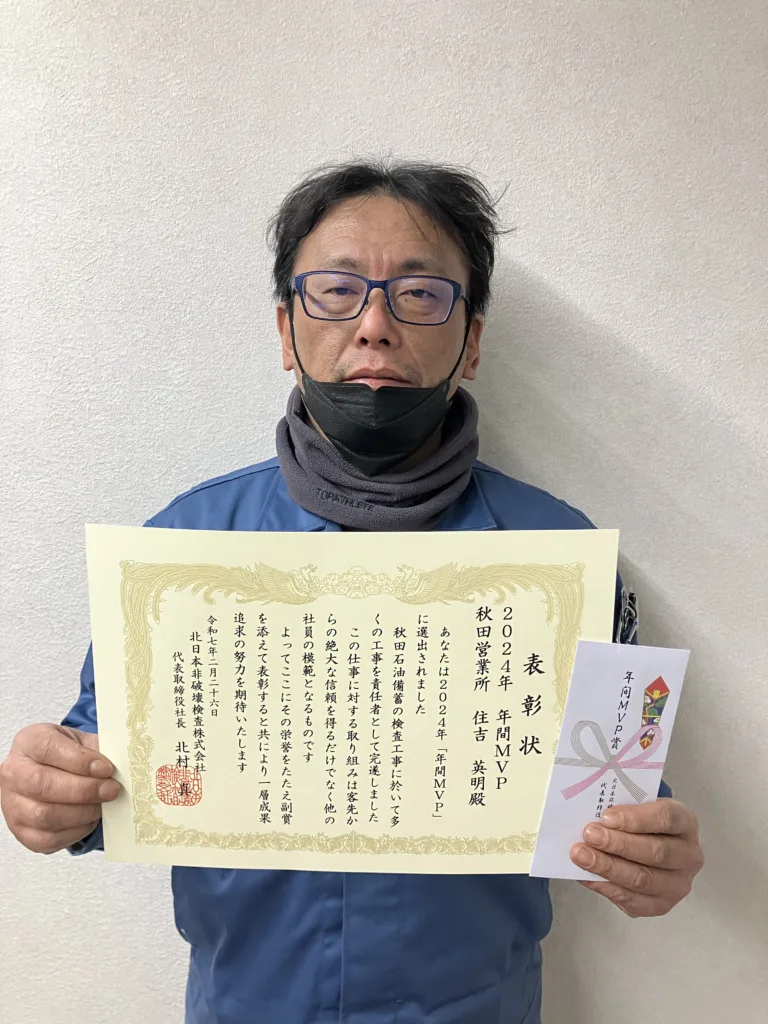 TOPATHLETE
表彰状
2024年 年間MVP
秋田営業所 住吉 英明殿
あなたは2024年「年間MVP」
に選出されました
秋田石油備蓄の検査工事に於いて多
くの工事を責任者として完遂しました
この仕事に対する取り組みは客先か
らの絶大な信頼を得るだけでなく他の
社員の模範となるものです
よってここにその栄誉をたたえ副賞
を添えて表彰すると共により一層成果
追求の努力を期待いたします
令和七年二月二十六日
北日本非破壊検査株式会社
代表取締役社長 北村 真
年间MVP賞
北日本非破
代表取締役